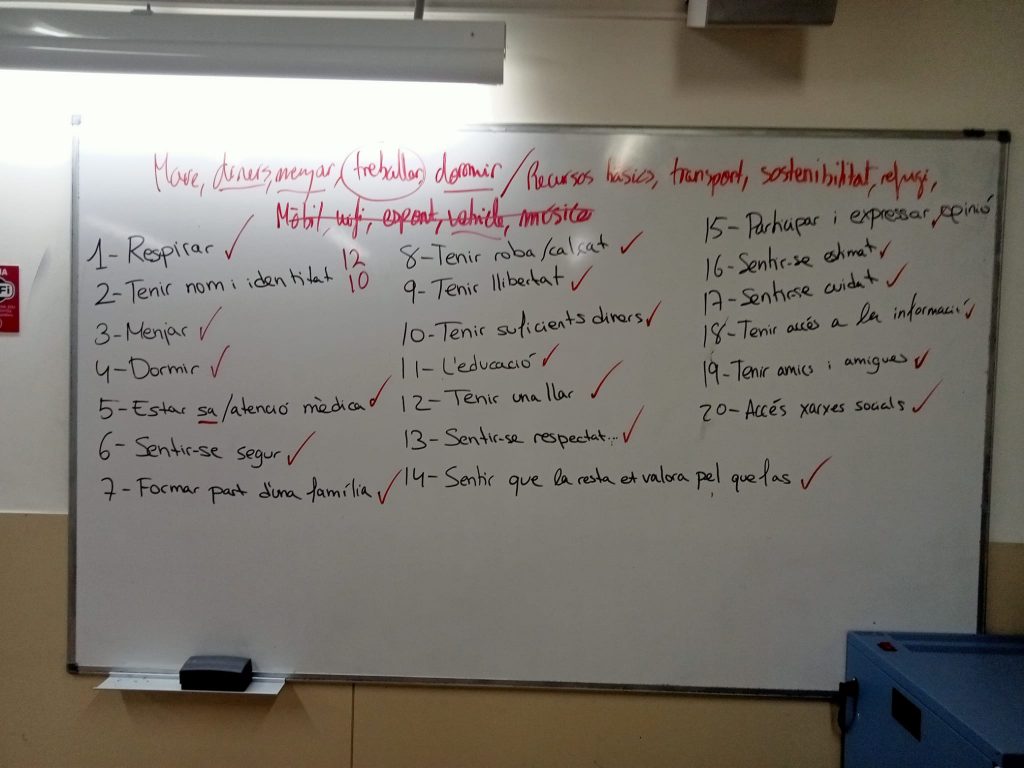 Mare, diners, menjar, treballar, dormir / Recursos bàsics, transport, sostenibilitat, refugi,
Mòbil, wifi, esport, vehicle, música
1- Respirar ✓
2- Tenir nom i identitat
12
10
3- Menjar ✓
4- Dormir ✓
5- Estar sa/atenció mèdica ✓
6- Sentir-se segur ✓
7- Formar part d'una família ✓
8- Tenir roba/calçat ✓
9- Tenir llibertat ✓
10- Tenir suficients diners ✓
11- L'educació ✓
12- Tenir una llar ✓
13- Sentir-se respectat... ✓
14- Sentir que la resta et valora pel que fas ✓
15- Participar i expressar opinió
16- Sentir-se estimat ✓
17- Sentir-se cuidat ✓
18- Tenir accés a la informació ✓
19- Tenir amics i amigues ✓
20- Accés xarxes socials ✓